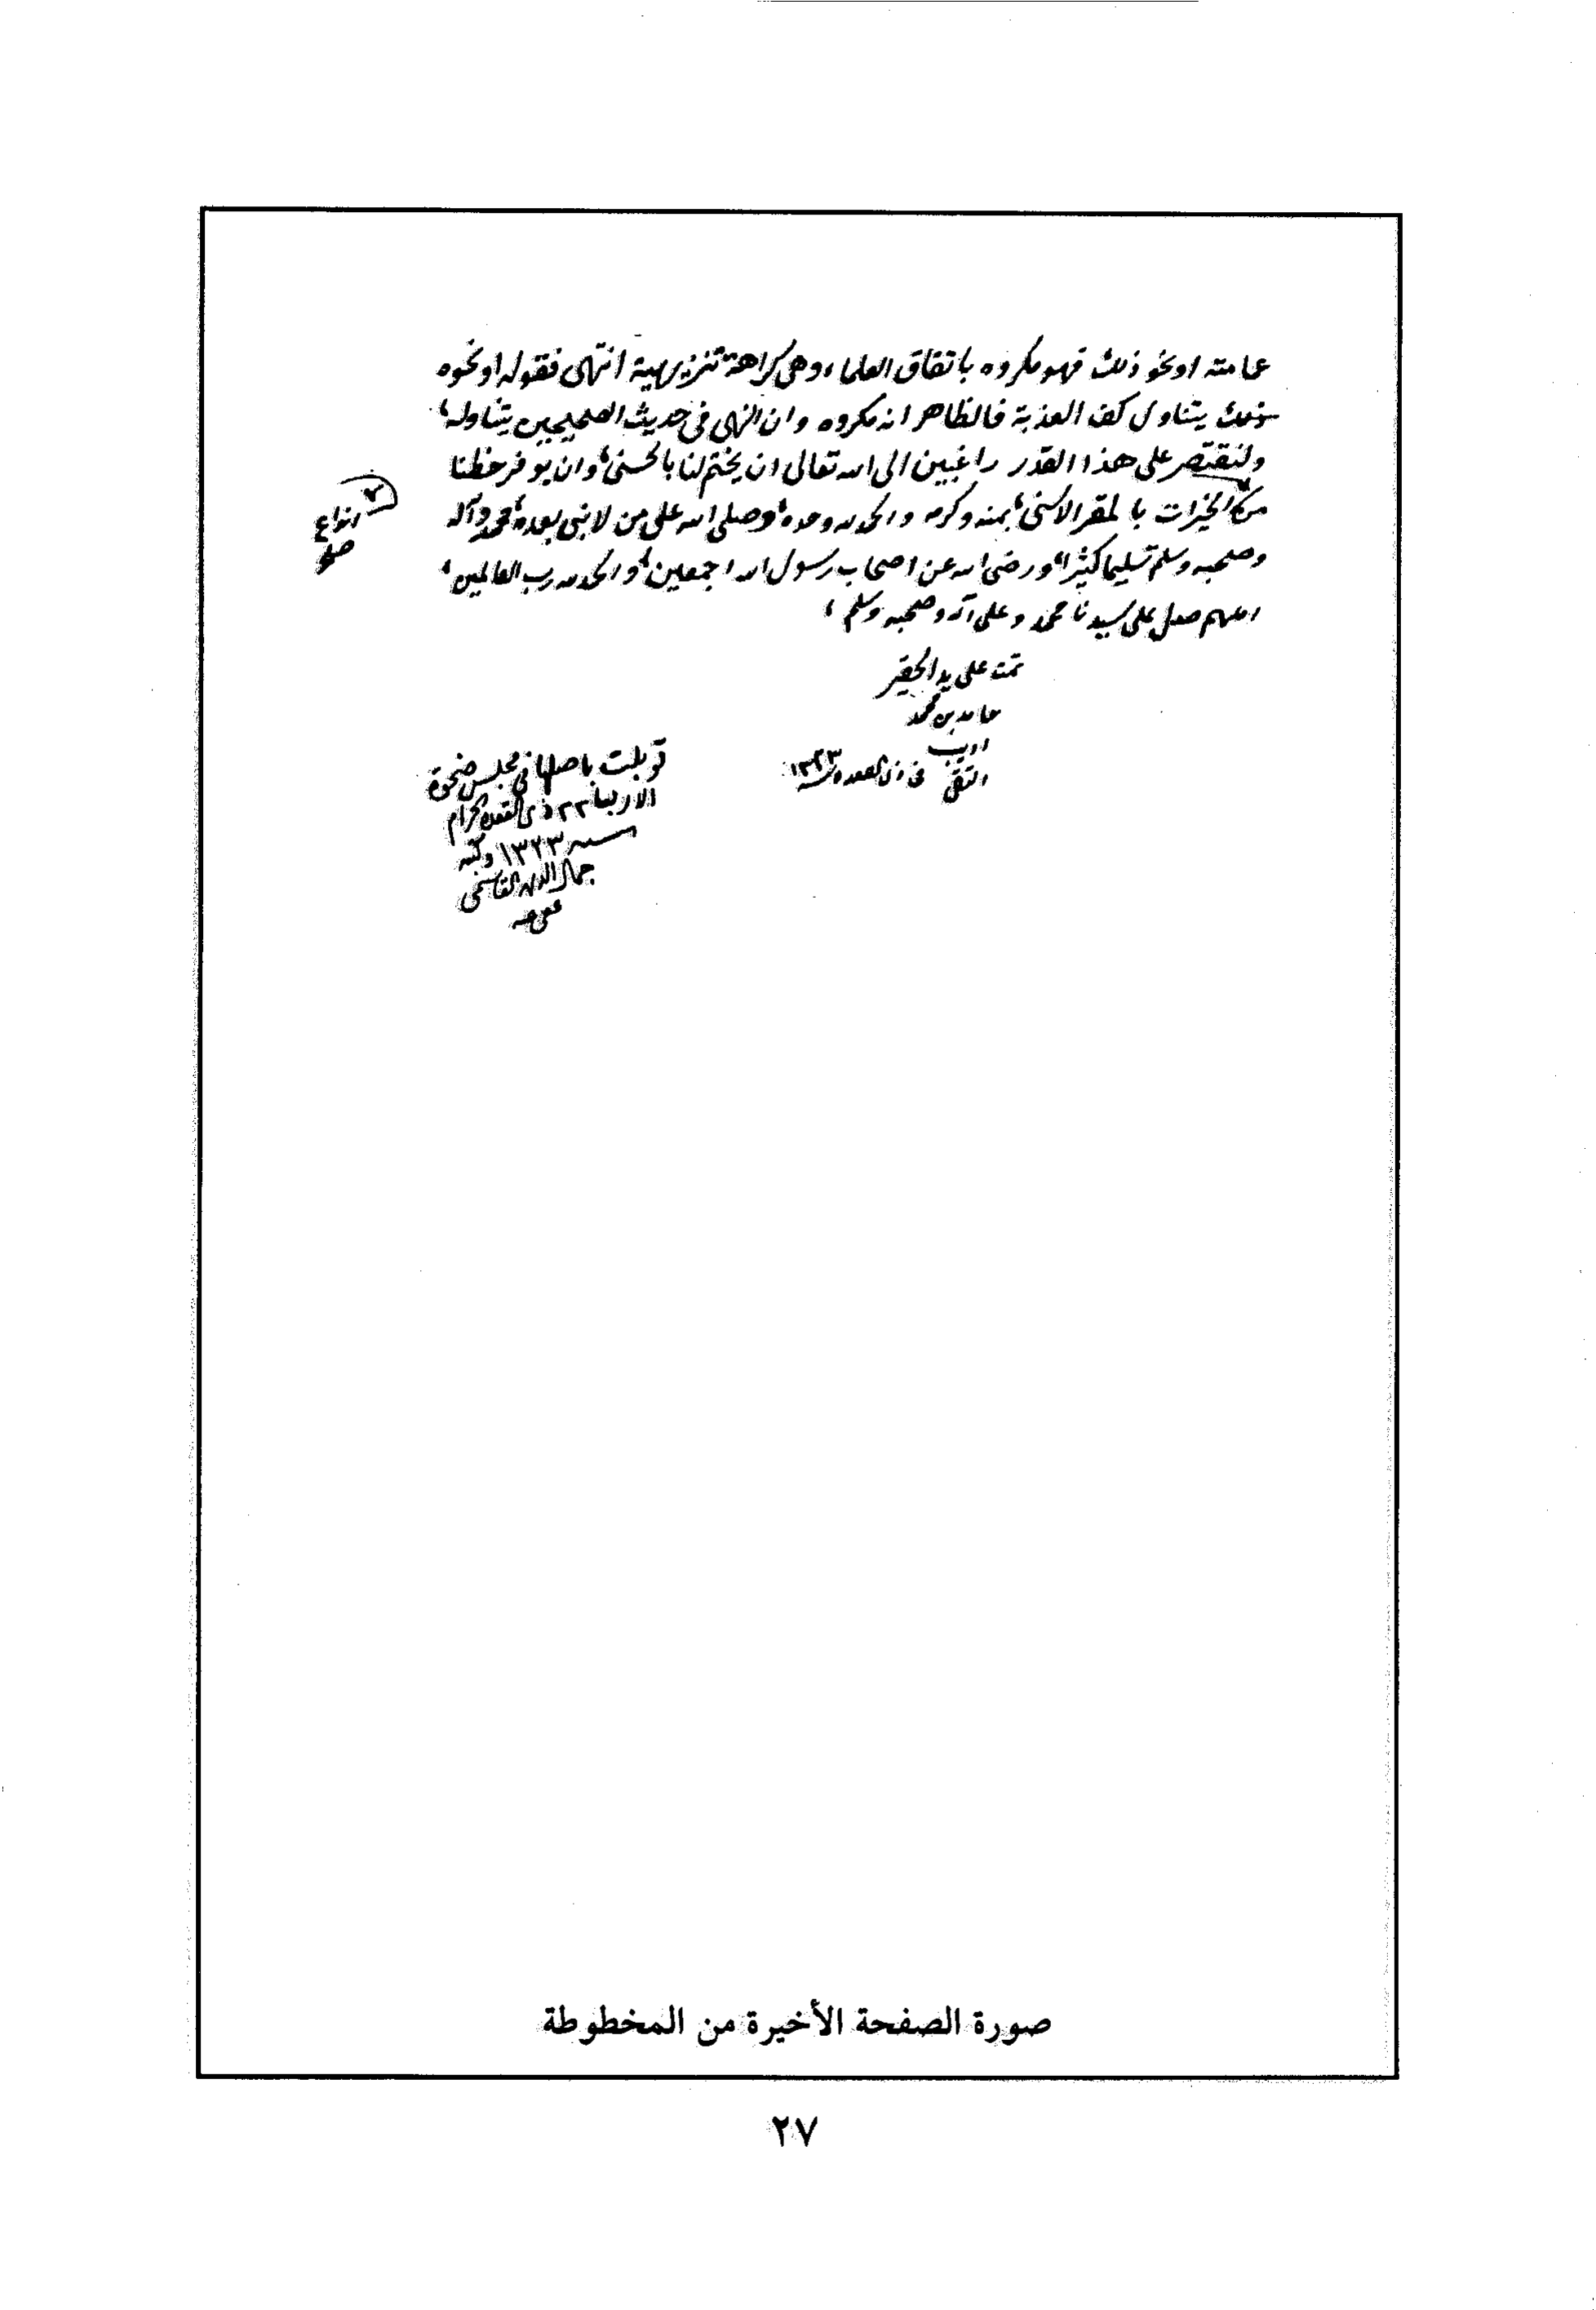 عامته او نحو ذلك فهو مكروه باتفاق العلماء وهى كراهة تنزيهية انتهى فقوله او نحوه
ذلك يتناول كف العذبة فالظاهر انه مكروه وان النهى فى حديث الصحيحين يتناوله،
ولنقتصر على هذا القدر راغبين الى الله تعالى ان يختم لنا بالحسنى، وان يوفر حظنا
من الخيرات بالمقر الاسنى، بمنه وكرمه والحمد لله وحده، وصلى الله على من لا نبى بعده، محمد وآله
وصحبه وسلم تسليما كثيرا، ورضى الله عن اصحاب رسول الله اجمعين، والحمد لله رب العالمين،
اللهم صل على سيدنا محمد وعلى آله وصحبه وسلم،
انواع
صلح
تمت على يد الحقير
حامد بن محمد
اديب
التقى
فى ذى القعدة سنة ١٣٢٣
قوبلت باصلها فى مجلس ضحوة
الاربعا ٢٢ ذى القعدة الحرام
سنة ١٣٢٣ وكتبه
جمال الدين القاسمى
عفى عنه
صورة الصفحة الأخيرة من المخطوطة
٢٧